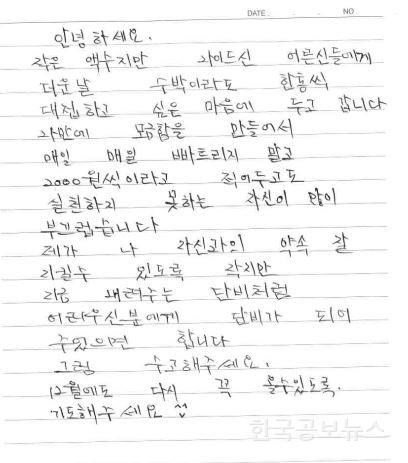 DATE . . . NO
안녕하세요.
작은 액수지만 나이드신 어른신들에게
더운날 수박이라도 한통씩
대접하고 싶은 마음에 두고 갑니다
나만에 모금함을 만들어서
매일 매일 빠트리지 말고
2000원씩이라고 적어두고도
실천하지 못하는 자신이 많이
부끄럽습니다
제가 나 자신과의 약속 잘
지킬수 있도록 하지만
지금 내려주는 단비처럼
어려우신분에게 단비가 되어
주었으면 합니다
그럼 수고해주세요.
12월에도 다시 꼭 올수있도록.
기도해주세요 ^^
한국공보뉴스